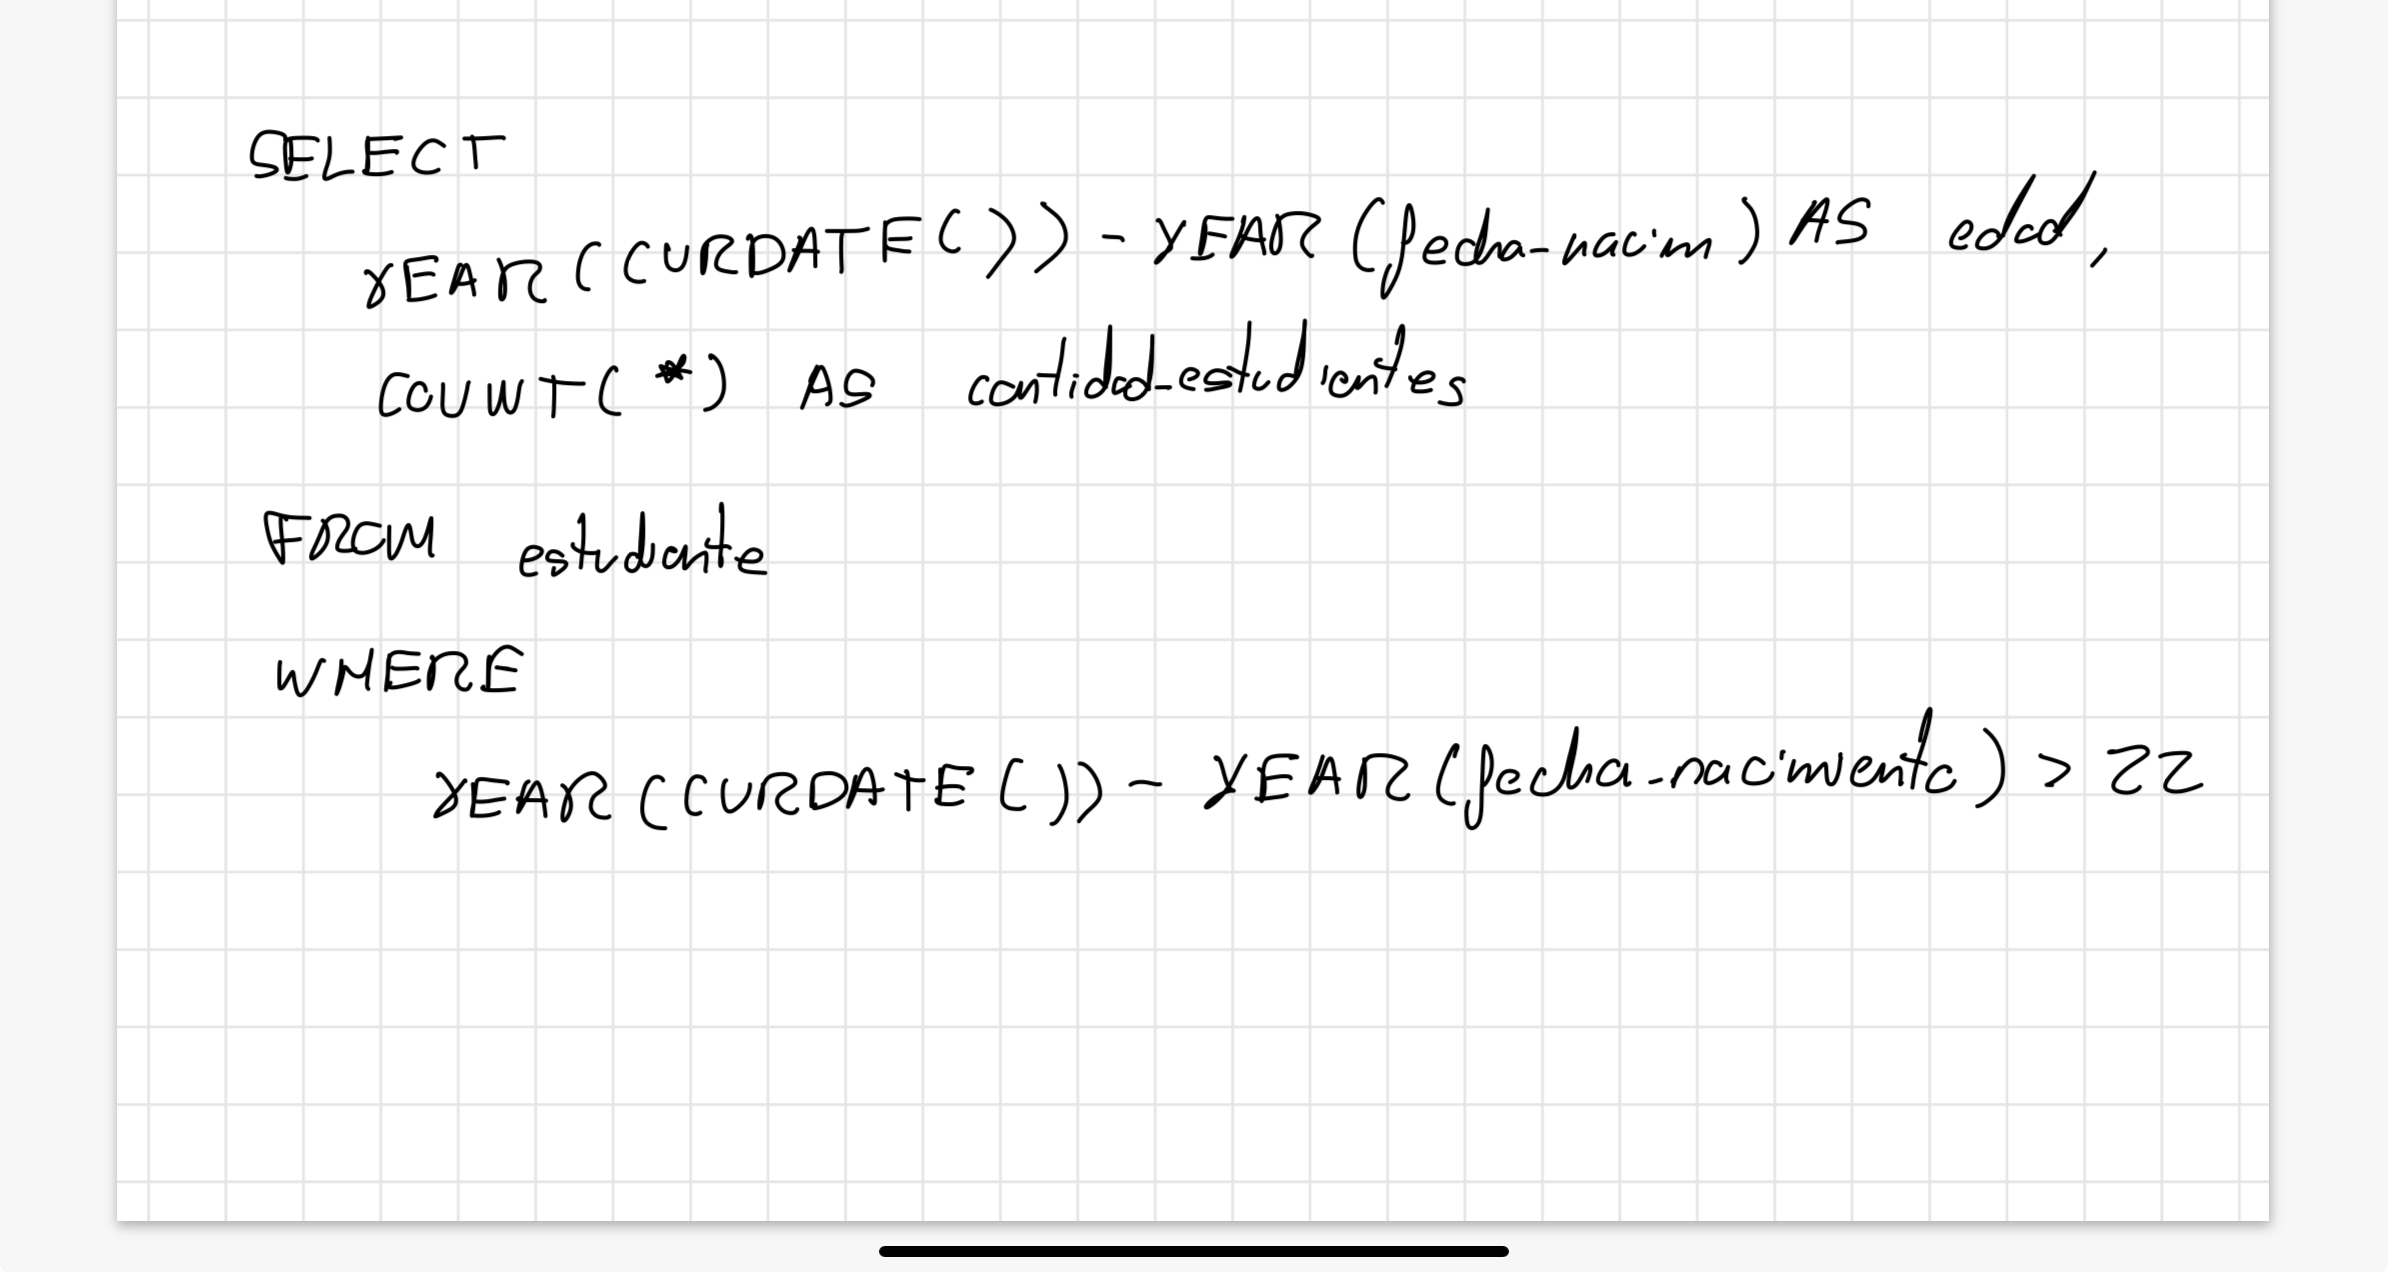 SELECT
YEAR(CURDATE()) - YEAR (fecha-nacim) AS edad,
COUNT(*) AS cantidad_estudiantes
FROM estudiante
WHERE
YEAR(CURDATE()) - YEAR(fecha_nacimiento) > 22